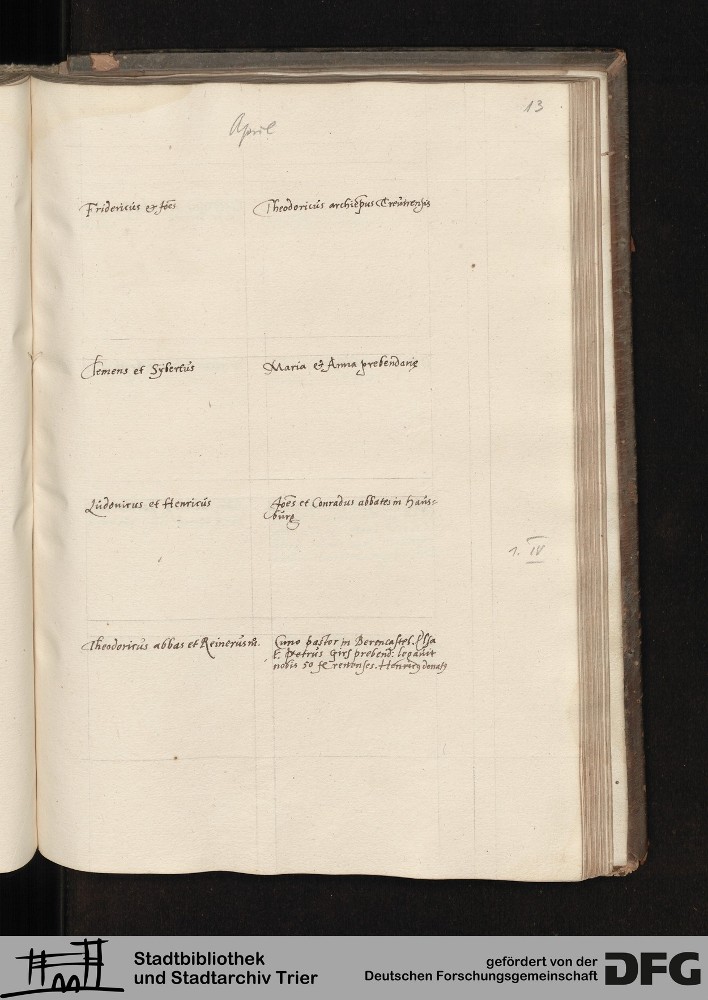 13
April
Fridericus et Joēs
Theodoricus archiēpus Treuirensis
Clemens et Sybertus
Maria et Anna prebendarię
Ludouicus et Henricus
Joēs et Conradus abbates in Haus-
burg
1. IV
Theodoricus abbas et Reinerus m̄.
Cuno pastor in Berencastel. Elsa
Petrus Girs prebend: legauit
nobis 50 fl renenses. Henricus donatꝰ
Stadtbibliothek
und Stadtarchiv Trier
gefördert von der
Deutschen Forschungsgemeinschaft
DFG